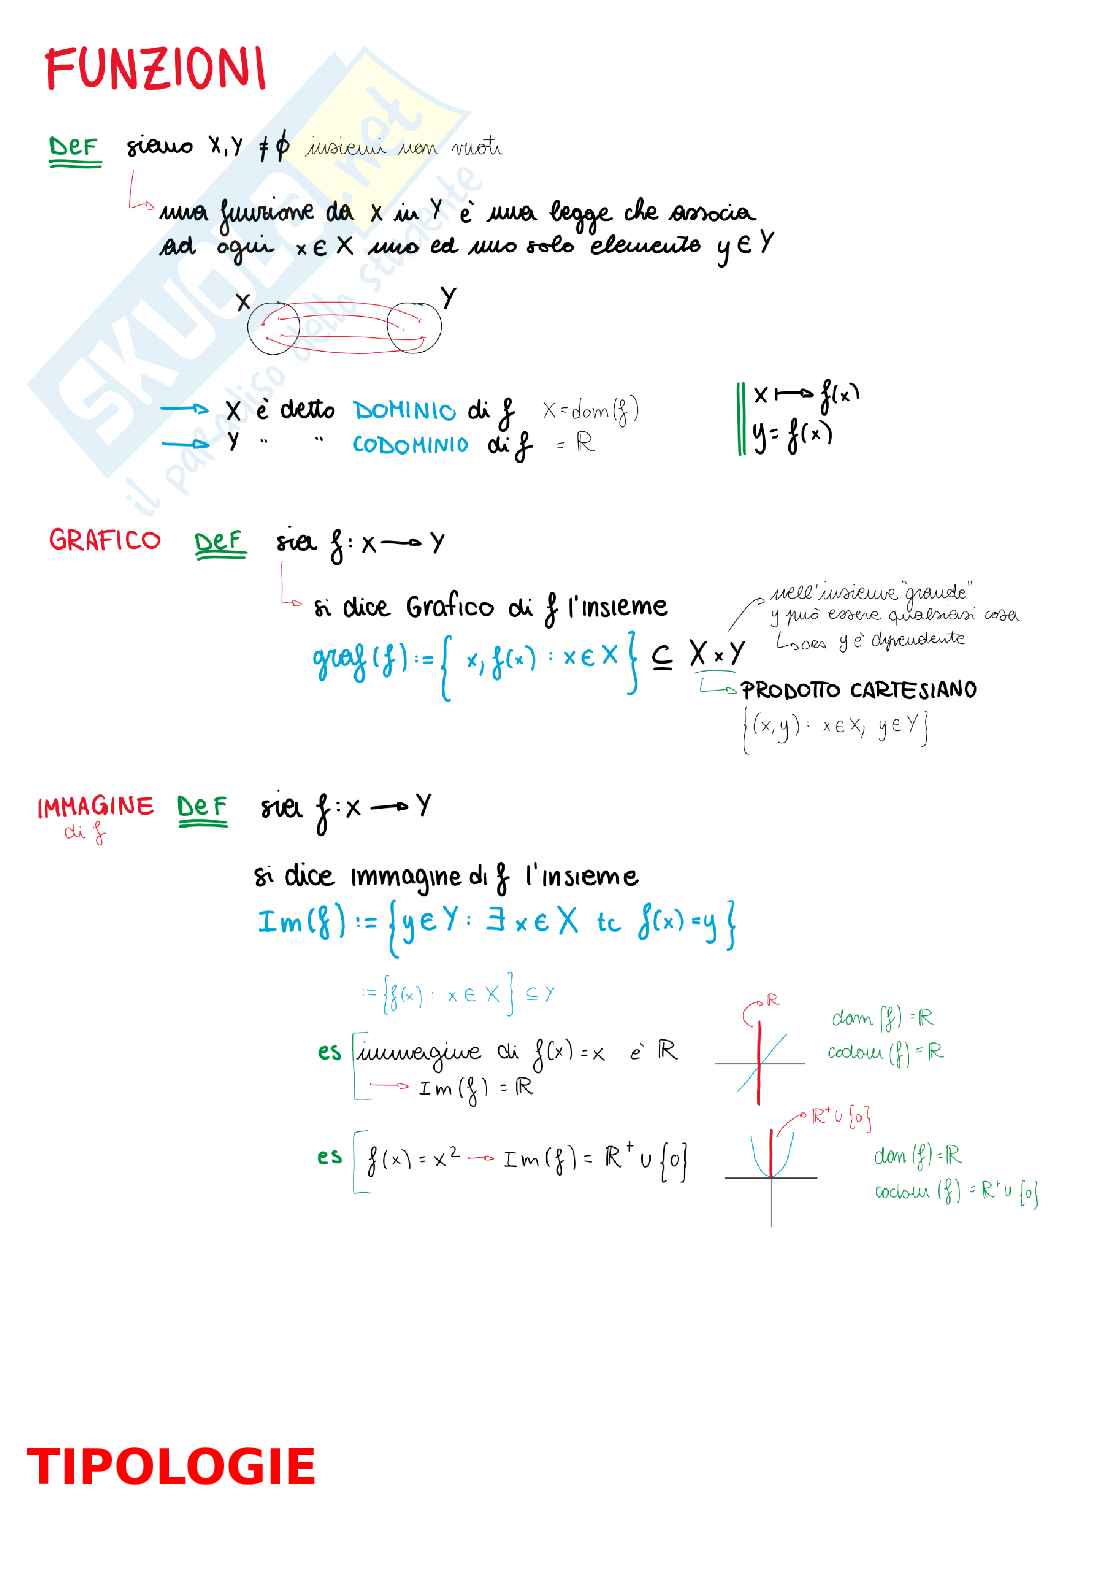 FUNZIONI
DeF siano X, Y ≠ ϕ insiemi non vuoti
una funzione da X in Y è una legge che associa
ad ogni x ∈ X uno ed uno solo elemento y ∈ Y
X Y
→ X è detto DOMINIO di f X = dom(f)
→ Y " " CODOMINIO di f = ℝ
x ↦ f(x)
y = f(x)
GRAFICO DeF sia f: X → Y
si dice Grafico di f l'insieme
graf(f) := { x, f(x) : x ∈ X } ⊆ X × Y
nell'insieme "grande"
y può essere qualsiasi cosa
y è dipendente
PRODOTTO CARTESIANO
{(x,y) : x ∈ X, y ∈ Y}
IMMAGINE DeF sia f: X → Y
di f
si dice immagine di f l'insieme
Im(f) := {y ∈ Y : ∃ x ∈ X tc f(x) = y}
:= {f(x) : x ∈ X} ⊆ Y
es immagine di f(x) = x è ℝ
→ Im(f) = ℝ
ℝ
dom(f) = ℝ
codom(f) = ℝ
es f(x) = x² → Im(f) = ℝ⁺ ∪ {0}
ℝ⁺ ∪ {0}
dom(f) = ℝ
codom(f) = ℝ⁺ ∪ {0}
TIPOLOGIE
SKUOLA.net
il paradiso dello studente